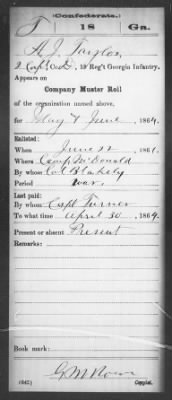 (Confederate.)
T 18 Ga.
A. J. Taylor
2 Corp'l, Co. D, 18 Reg't Georgia Infantry.
Appears on
Company Muster Roll
of the organization named above,
for May & June, 1864.
Enlisted:
When June 12, 1861.
Where Camp McDonald
By whom Col. Blakely
Period war.
Last paid:
By whom Capt. Turner
To what time April 30, 1864.
Present or absent Present
Remarks:
Book mark:
(642)
G M
Copyist.